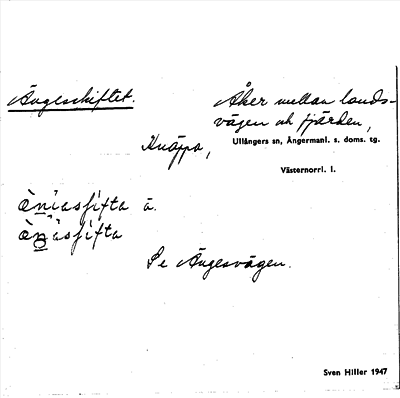 Ängeschiftet.
Åker mellan lands-
vägen och fjärden,
Knäppa,
Ullångers sn, Ångermanl. s. doms. tg.
Västernorrl. l.
ä.
Se Ängesvägen.
Sven Hiller 1947